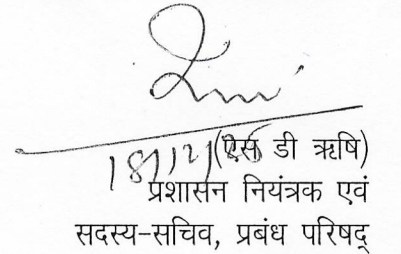 (एस डी ऋषि)
प्रशासन नियंत्रक एवं
सदस्य-सचिव, प्रबंध परिषद्